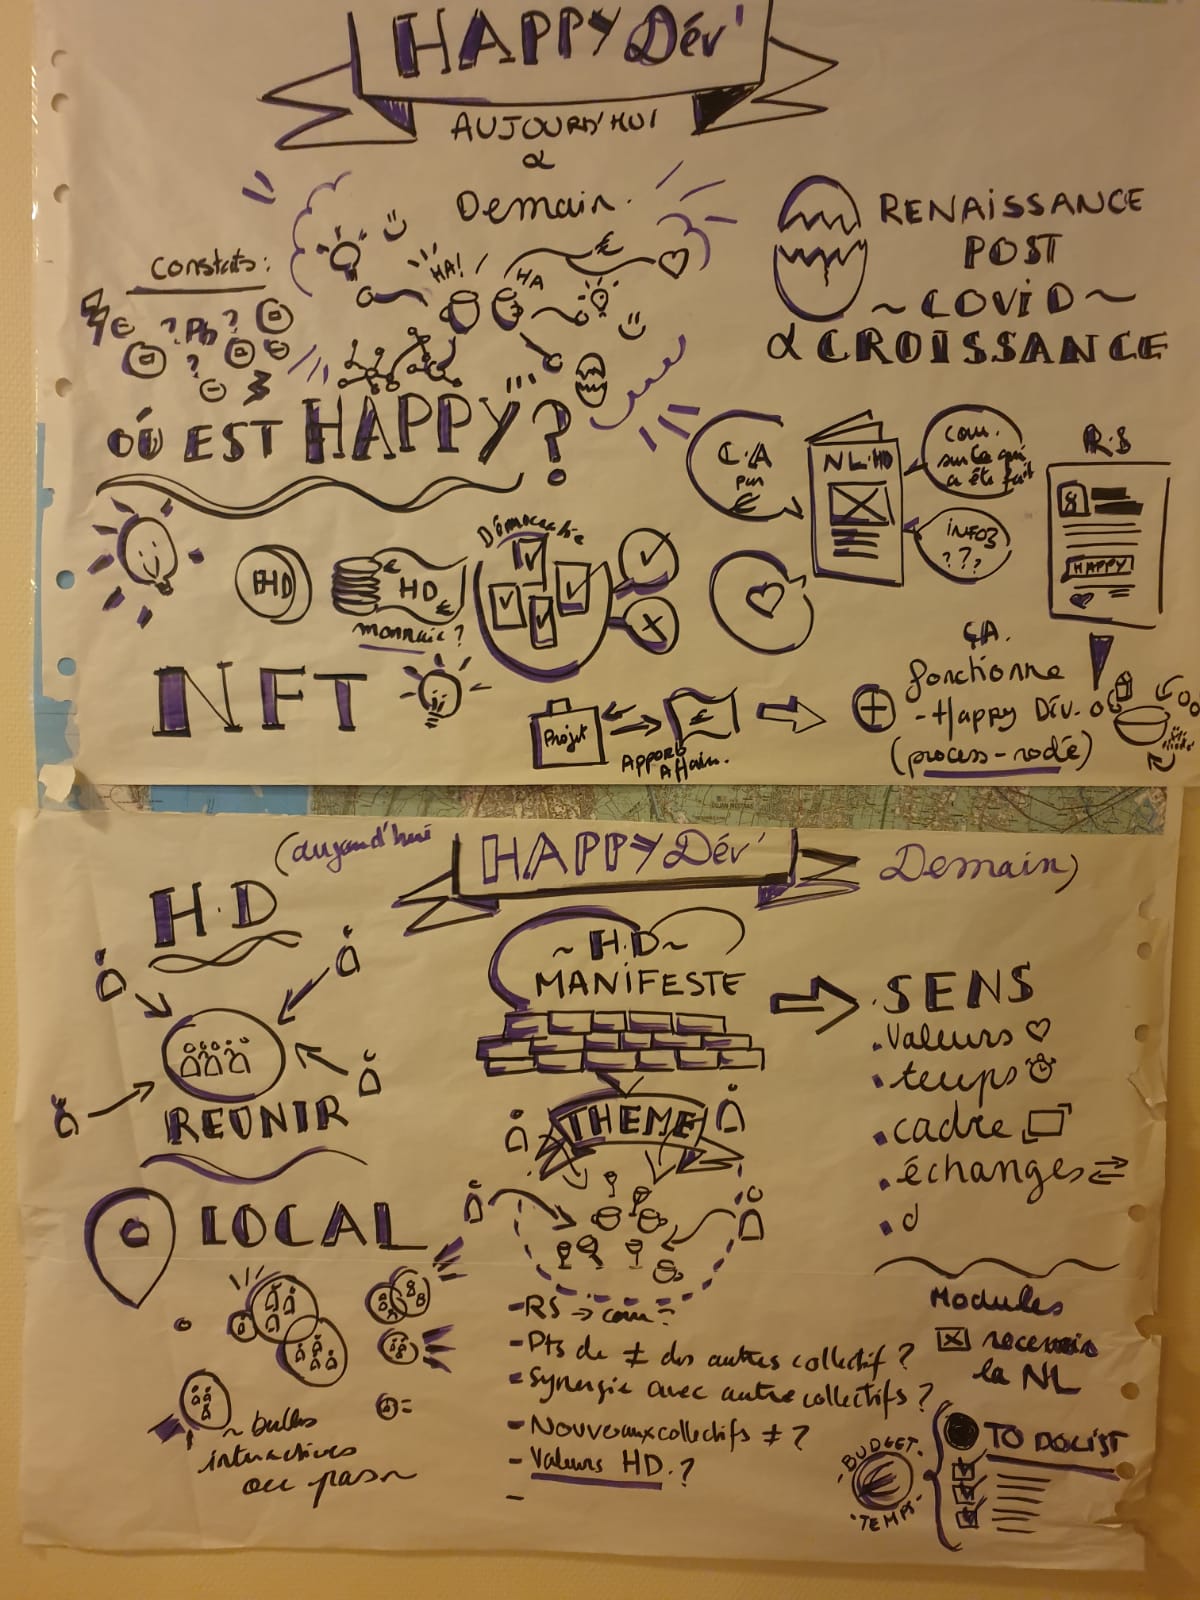 HAPPY Dév'
AUJOURD'HUI
&
Demain.
Constats:
€ ? Pb ?
?
HA!
HA
€
RENAISSANCE
POST
~ COViD ~
& CROISSANCE
OÙ EST HAPPY ?
C.A
par
€
NL.HD
com.
sur ce qui
a été fait
INFOS
? ? ?
R.S
HAPPY
HD
HD
€
€
monnaie ?
Démocratie
NFT
Projet
€
Apport
Affaire.
ÇA
fonctionne
- Happy Dév.
(process-rodé)
(aujourd'hui
HAPPY Dév'
Demain)
H.D
REUNIR
LOCAL
~ bulles
interactives
ou pas ~
~ H.D ~
MANiFESTE
THEME
- RS → com =
- Pts de ≠ des autres collectif ?
- Synergie avec autre collectifs ?
- Nouveaux collectifs ≠ ?
- Valeurs HD. ?
-
. SENS
. Valeurs
. temps
. cadre
. échanges
. d
Modules
recevoir
la NL
BUDGET
€
TEMPS
TO DOLIST